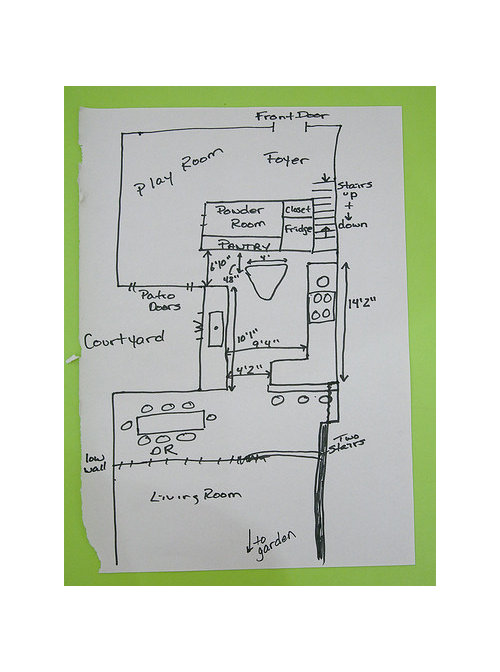 Front Door
Play Room
Foyer
Stairs
up
+
down
Powder
Room
Closet
Fridge
PANTRY
6'10"
4'
48"
Patio
Doors
14'2"
Courtyard
10'1"
9'4"
4'2"
DR
Two
Stairs
low
wall
Living Room
to
garden